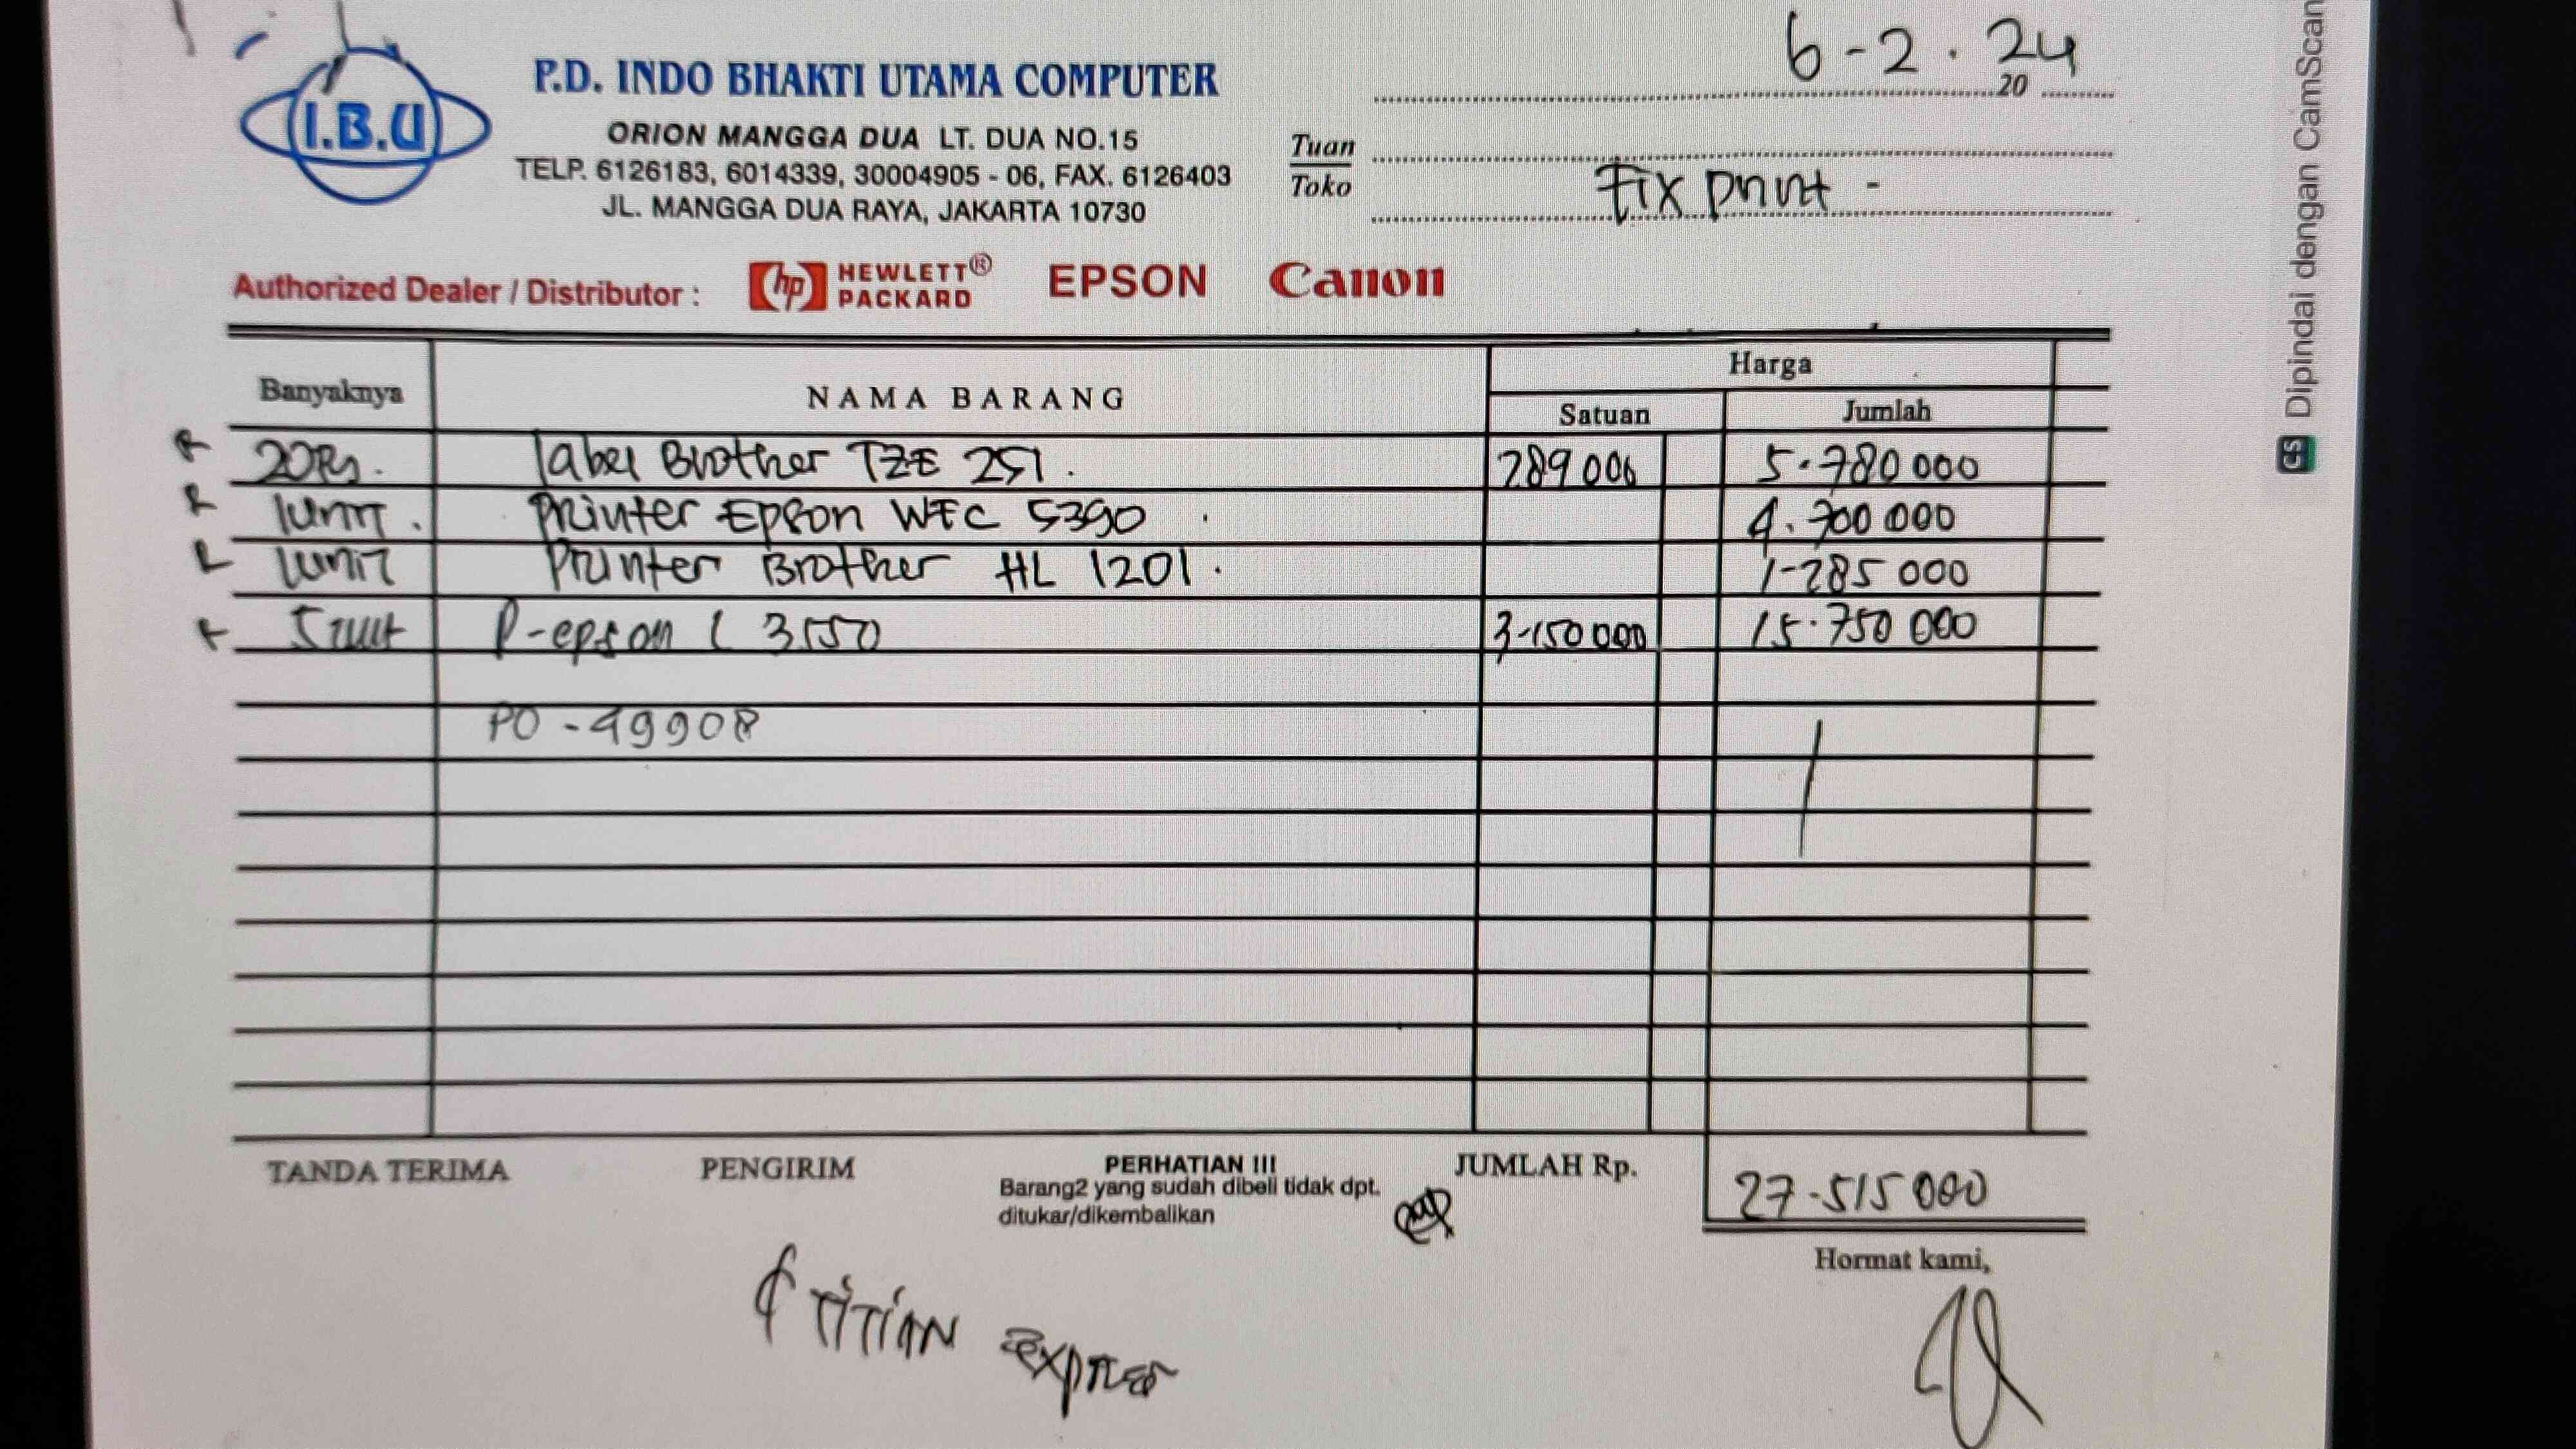 6-2.24
20
I.B.U
P.D. INDO BHAKTI UTAMA COMPUTER
ORION MANGGA DUA LT. DUA NO.15
TELP. 6126183, 6014339, 30004905 - 06, FAX. 6126403
JL. MANGGA DUA RAYA, JAKARTA 10730
Tuan
Toko
Fix print -
Authorized Dealer / Distributor :
hp HEWLETT® PACKARD
EPSON
Canon
Banyaknya NAMA BARANG Harga
Satuan Jumlah
20 Label Brother TZE 251. 289 000 5.780 000
1 unit. Printer Epson WFC 5390 4.700 000
1 unit Printer Brother HL 1201. 1-285 000
5 unit P-epson L 3550 3-150 000 15.750 000
PO - 49908
TANDA TERIMA PENGIRIM PERHATIAN !!! JUMLAH Rp. 27-515 000
Barang2 yang sudah dibeli tidak dpt.
ditukar/dikembalikan
Hormat kami,
TITIAN
CS Dipindai dengan CamScan